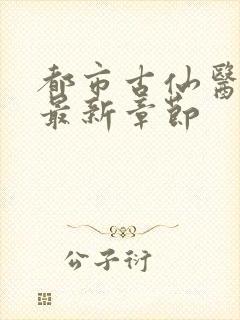 都市古仙醫
最新章節
公子衍